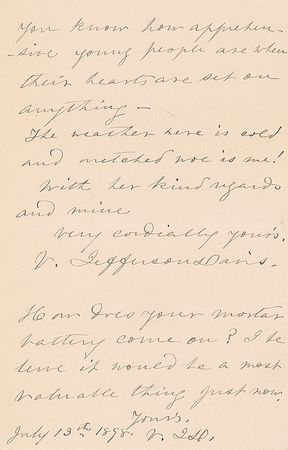 You know how apprehen-
-sive young people are when
their hearts are set on
anything—
The weather here is cold
and wretched woe is me!
With her kind regards
and mine
very cordially yours.
V. Jefferson Davis.
How does your mortar
battery come on? I be
lieve it would be a most
valuable thing just now.
Yours.
July 13th 1898. V. J D.